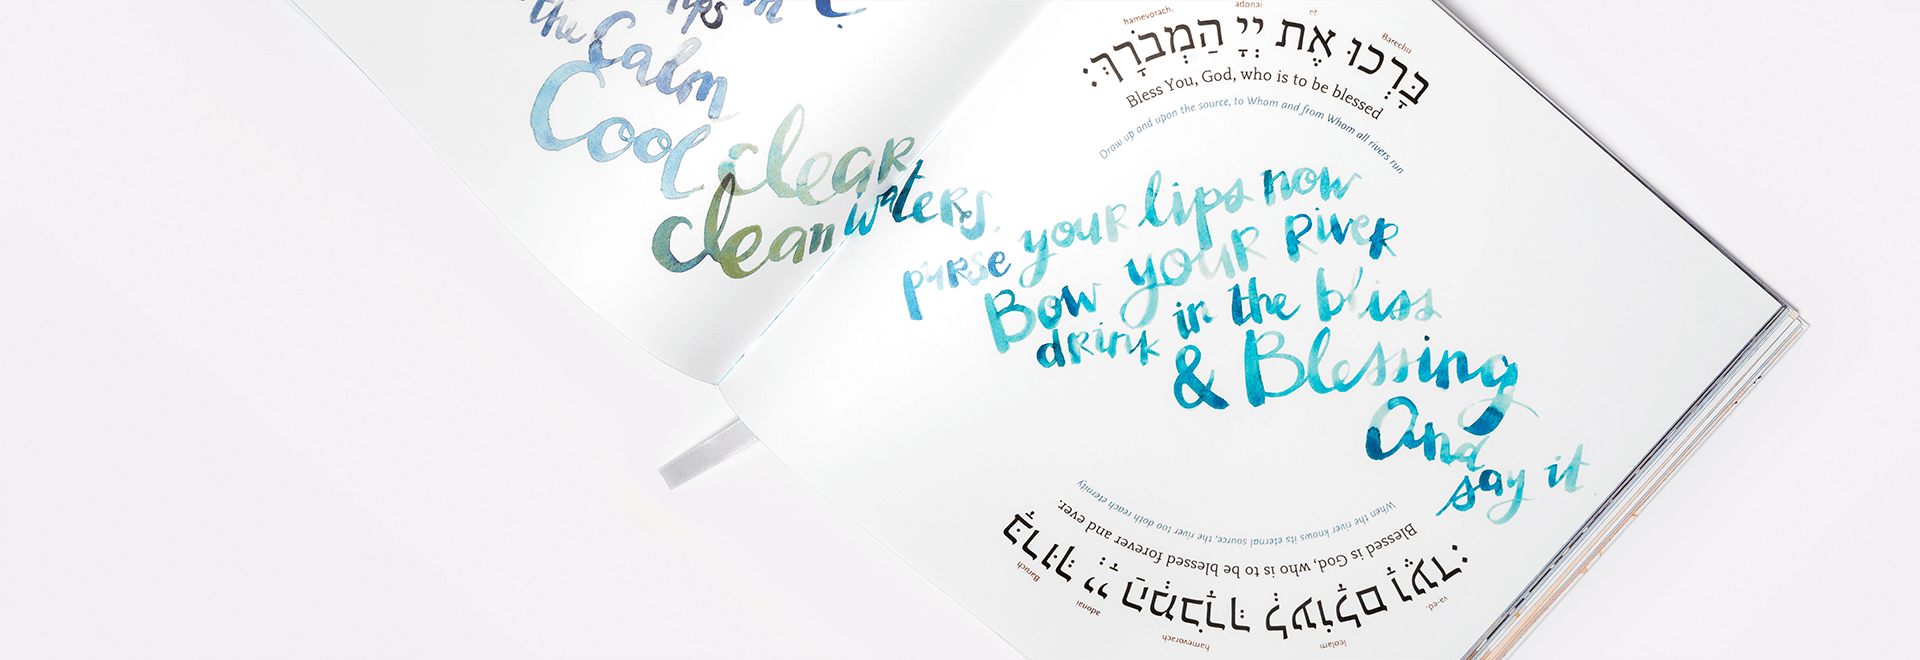 the Calm
Cool clear
clean waters.
hamevorach. adonai et Barechu
בָּרְכוּ אֶת יְיָ הַמְבֹרָךְ:
Bless You, God, who is to be blessed
Draw up and upon the source, to Whom and from Whom all rivers run
purse your lips now
Bow your River
drink in the bliss
& Blessing
And
say it
When the river knows its eternal source, the river too doth reach eternity
Blessed is God, who is to be blessed forever and ever.
בָּרוּךְ יְיָ הַמְבֹרָךְ לְעוֹלָם וָעֶד:
Baruch adonai hamevorach leolam va-ed.